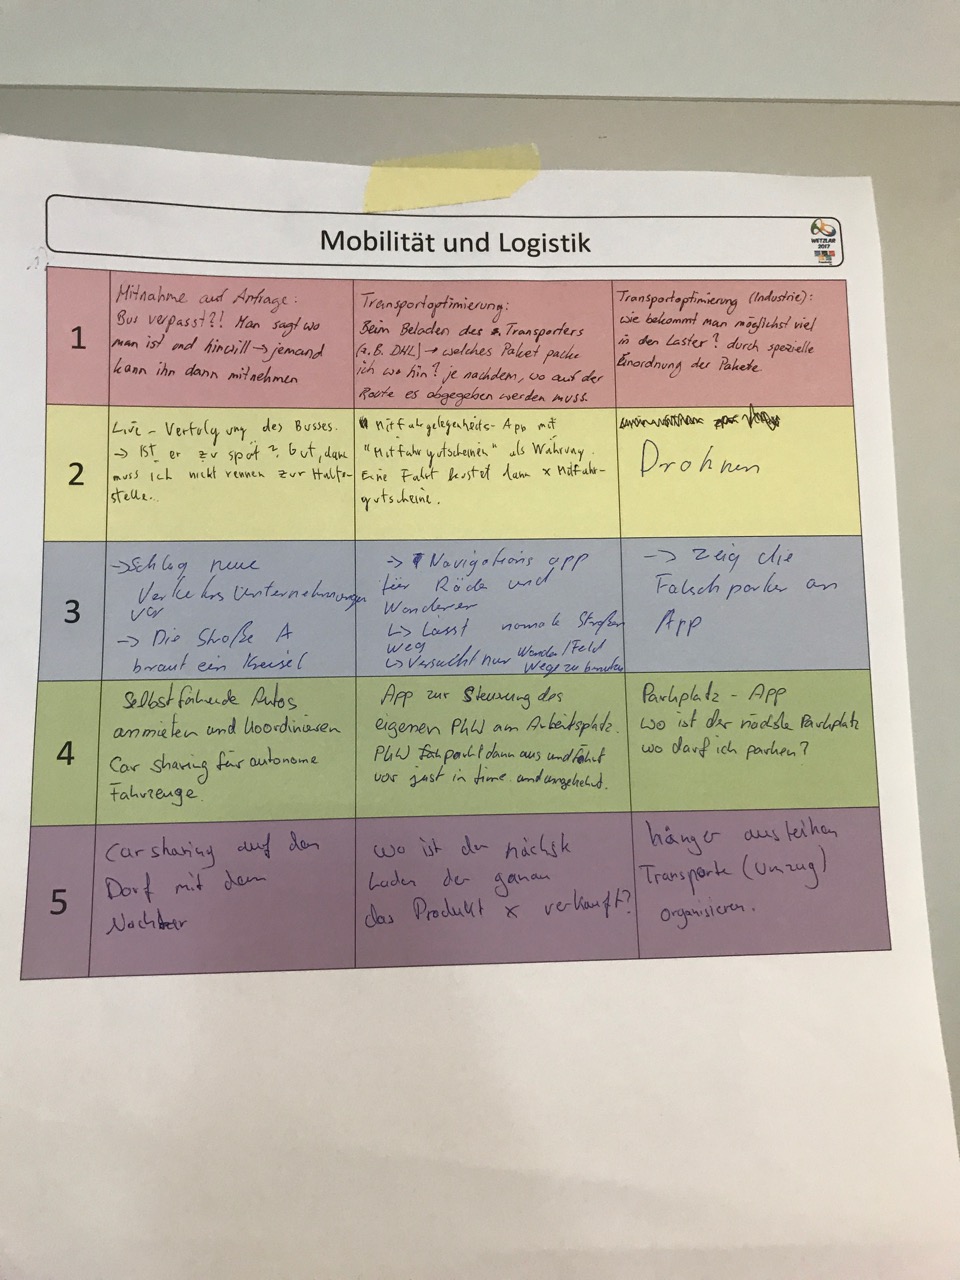 Mobilität und Logistik
WETZLAR
2017
1
Mitnahme auf Anfrage:
Bus verpasst?! Man sagt wo
man ist und hinwill → jemand
kann ihn dann mitnehmen
Transportoptimierung:
Beim Beladen des Transporters
(z.B. DHL) → welches Paket packe
ich wo hin? je nachdem, wo auf der
Route es abgegeben werden muss.
Transportoptimierung (Industrie):
wie bekommt man möglichst viel
in den Laster? durch spezielle
Einordnung der Pakete
2
Live-Verfolgung des Busses.
→ Ist er zu spät? Gut, dann
muss ich nicht rennen zur Halte-
stelle...
Mitfahrgelegenheits-App mit
"Mitfahrgutscheinen" als Währung.
Eine Fahrt kostet dann x Mitfahr-
gutscheine.
Drohnen
3
→ Schlag neue
Verkehrsunternehmungen
vor
→ Die Straße A
braut ein Kreisel
→ Navigations app
für Räde und
Wanderer
↳ Lässt normale Straßen
weg
↳ Versucht nur Wander/Feld
Wege zu benutzen
→ Zeig die
Falschparker an
App
4
Selbstfahrende Autos
anmieten und koordinieren
Car sharing für autonome
Fahrzeuge.
App zur Steuerung des
eigenen PKW am Arbeitsplatz.
PKW parkt dann aus und fährt
vor just in time und umgekehrt.
Parkplatz-App
wo ist der nächste Parkplatz
wo darf ich parken?
5
Carsharing auf dem
Dorf mit dem
Nachbar
wo ist der nächste
Laden der genau
das Produkt x verkauft?
hänger ausleihen
Transporte (Umzug)
organisieren.